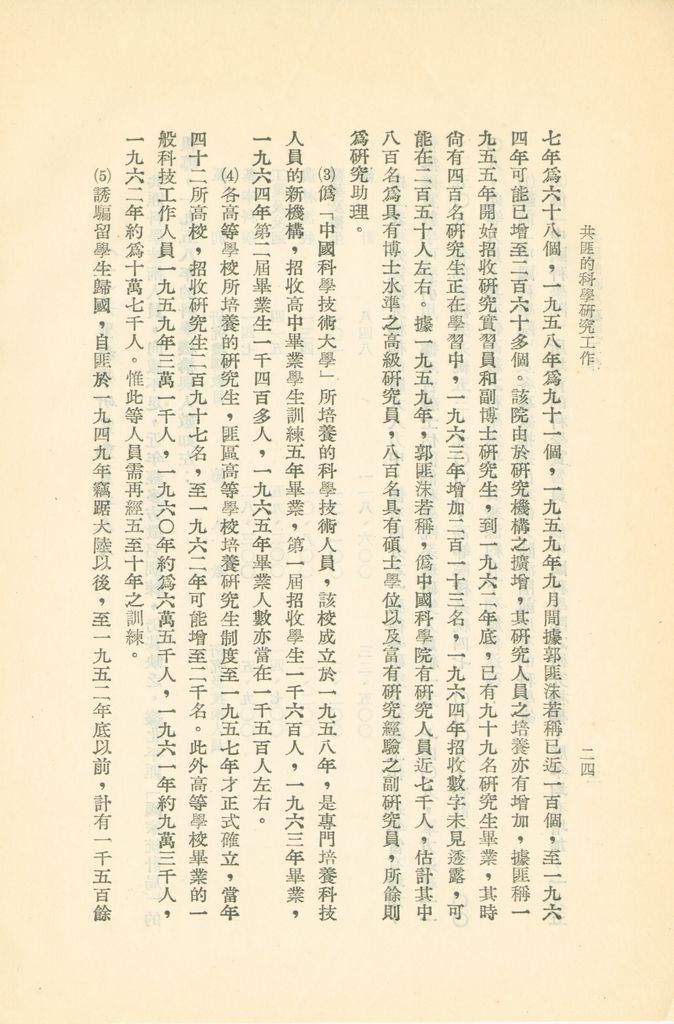 共匪的科學研究工作
二四
七年爲六十八個，一九五八年爲九十一個，一九五九年九月間據郭匪沫若稱已近一百個，至一九六
四年可能已增至二百六十多個。該院由於研究機構之擴增，其研究人員之培養亦有增加，據匪稱一
九五五年開始招收研究實習員和副博士研究生，到一九六二年底，已有九十九名研究生畢業，其時
尙有四百名研究生正在學習中，一九六三年增加二百一十三名，一九六四年招收數字未見透露，可
能在二百五十人左右。據一九五九年，郭匪沫若稱，僞中國科學院有研究人員近七千人，估計其中
八百名爲具有博士水準之高級研究員，八百名具有碩士學位以及富有研究經驗之副研究員，所餘則
爲研究助理。
⑶僞「中國科學技術大學」所培養的科學技術人員，該校成立於一九五八年，是專門培養科技
人員的新機構，招收高中畢業學生訓練五年畢業，第一屆招收學生一千六百人，一九六三年畢業，
一九六四年第二屆畢業生一千四百多人，一九六五年畢業人數亦當在一千五百人左右。
⑷各高等學校所培養的研究生，匪區高等學校培養研究生制度至一九五七年才正式確立，當年
四十二所高校，招收研究生二百九十七名，至一九六二年可能增至二千名。此外高等學校畢業的一
般科技工作人員一九五九年三萬一千人，一九六〇年約爲六萬五千人，一九六一年約九萬三千人，
一九六二年約爲十萬七千人。惟此等人員需再經五至十年之訓練。
⑸誘騙留學生歸國，自匪於一九四九年竊踞大陸以後，至一九五二年底以前，計有一千五百餘